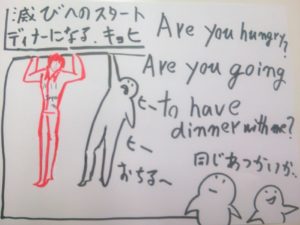 滅びへのスタート
ディナーになる、キョヒ
Are you hungry?
Are you going
to have
dinner with me?
ヒー
ヒー
おちる〜
同じあつかいか、